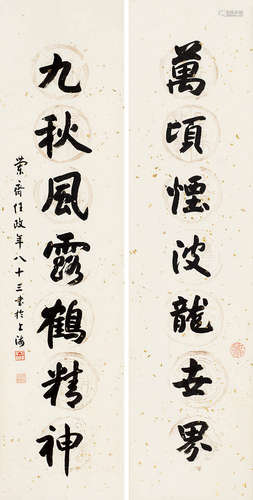 萬頃煙波龍世界
九秋風露鶴精神
蘭齋任政年八十三書於上海